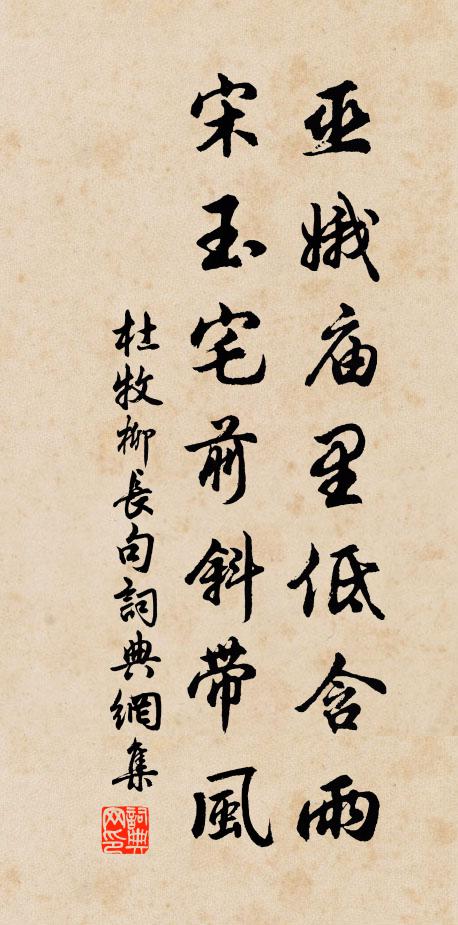 巫娥庙里低含雨
宋玉宅前斜帶風
杜牧柳長句詞典網集
詞典
网印